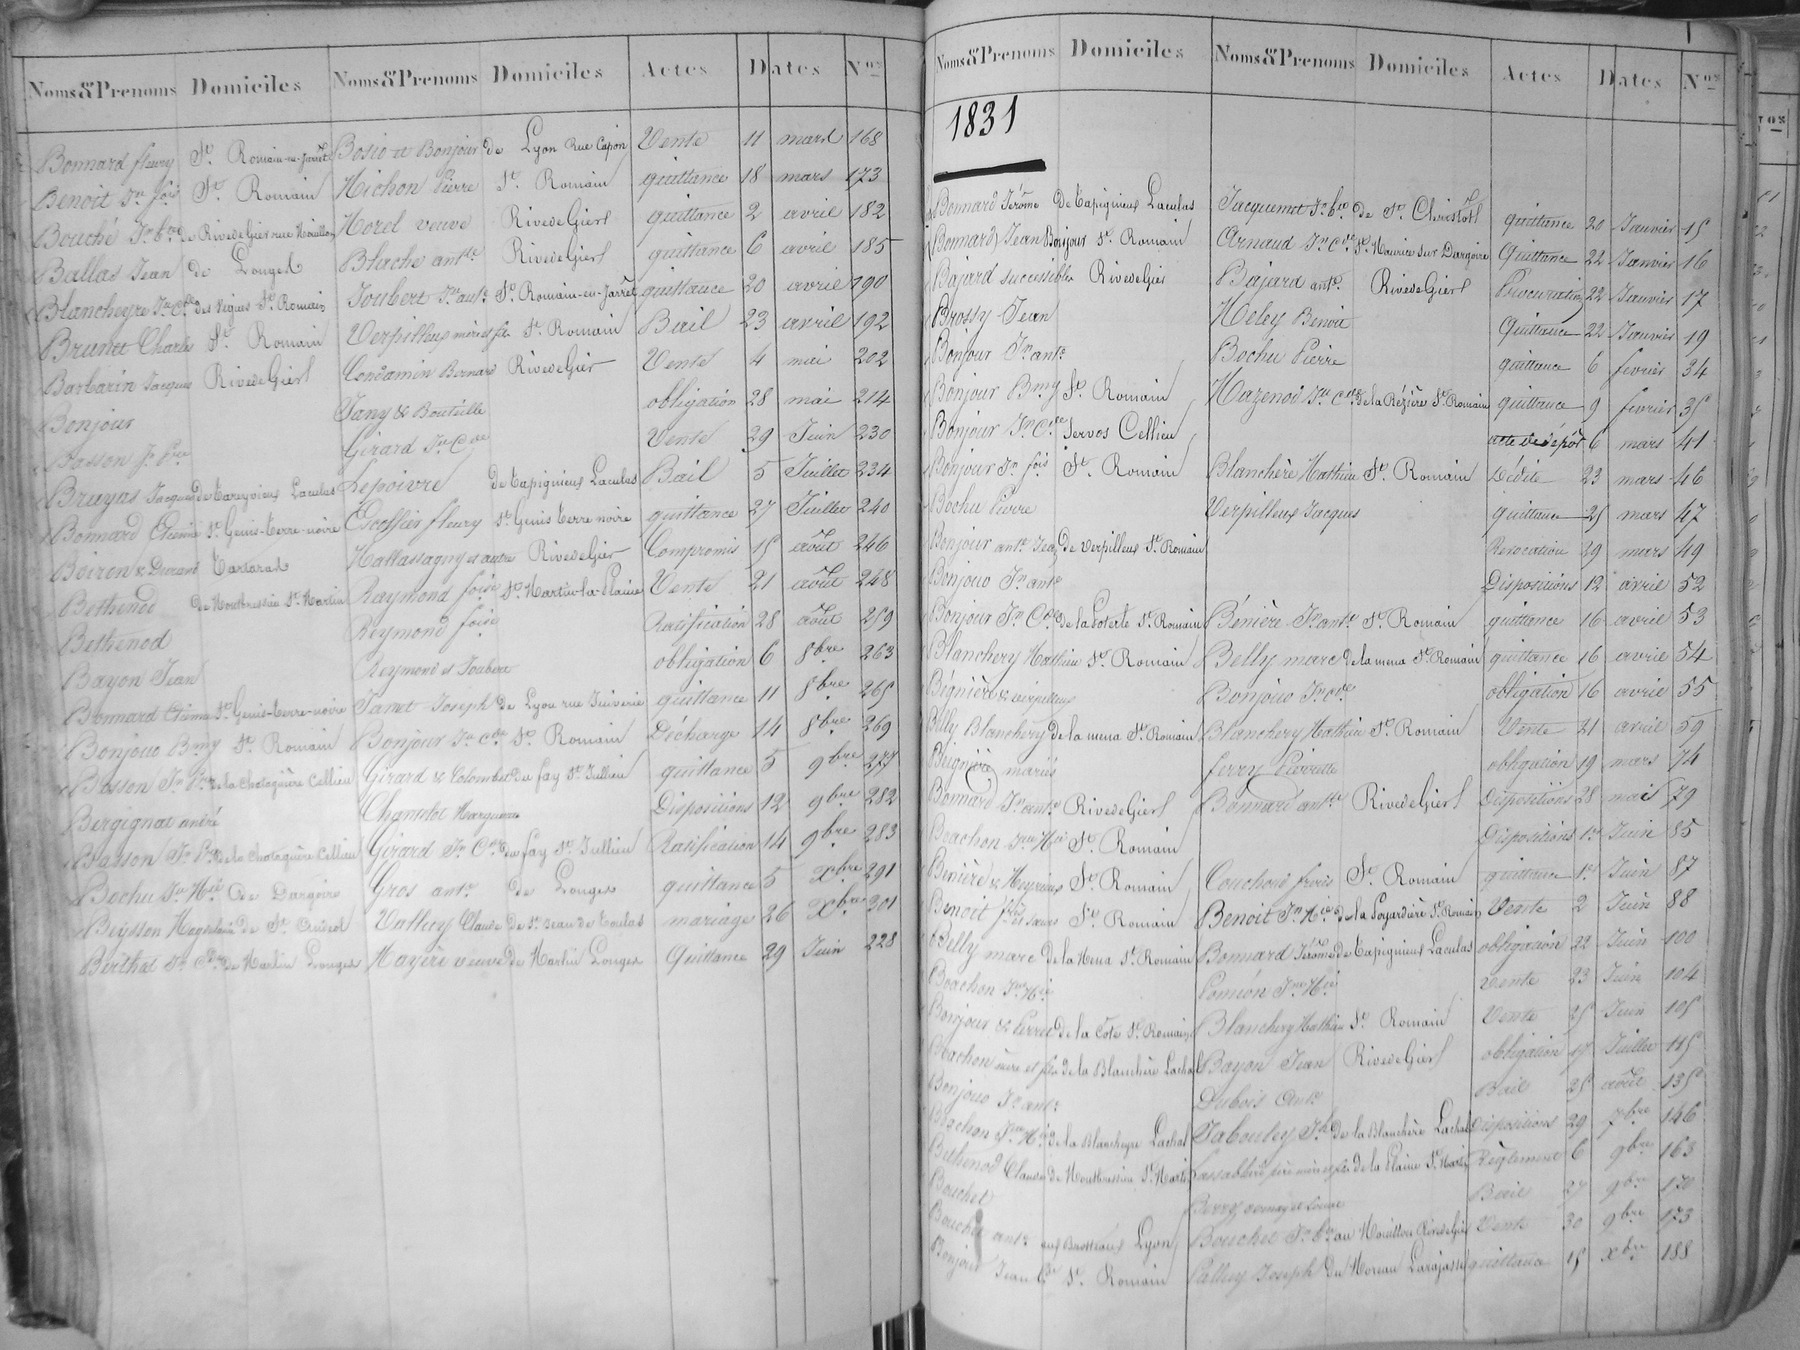 Noms & Prenoms Domiciles Noms & Prenoms Domiciles Actes Dates Nos
Bonnard fleury St. Romain-en-Jarrêt Bosio et Bonjour de Lyon Rue Capon Vente 11 mars 168
Benoit Jn. fois St. Romain Michon Pierre St. Romain quittance 18 mars 173
Bouché Jn. bte de Rivedegier rue Mouillon Morel veuve RivedeGier quittance 2 avril 182
Ballas Jean de Longes Blache antne RivedeGier quittance 6 avril 185
Blancheyre Jn. Cde des Vignes St. Romain Joubert Jn. ant. St. Romain-en-Jarrêt quittance 20 avril 190
Brunet Charles St. Romain Verpilleux mère et fils St. Romain Bail 23 avril 192
Barbarin Jacques RivedeGier Condamin Bernard RivedeGier Vente 4 mai 202
Bonjour Jany & Bouteille obligation 28 mai 214
Basson Jn. Pre Girard Jn. Cde Vente 29 Juin 230
Bruyas Jacques Laculas Lepoivre de Tapignieux Laculas Bail 5 Juillet 234
Bonnard Etienne St. Genis-terre-noire Escoffier fleury St. Genis terre noire quittance 27 Juillet 240
Boiron & Durand Tartaras Mallassagny et autre RivedeGier Compromis 15 août 246
Bethenod St. Martin Raymond foise St. Martin-la-Plaine Vente 21 août 248
Bethenod Reymond foise Ratification 28 août 259
Bayon Jean Reymond et Joubert obligation 6 8bre 263
Bonnard Etienne St. Genis-terre-noire Janet Joseph de Lyon rue Juiverie quittance 11 8bre 265
Bonjour Bmy St. Romain Bonjour Jn. Cde St. Romain Décharge 14 8bre 269
Basson Jn. Pre de la Chataguère Cellieu Girard & Colombet du fay St. Jullien quittance 5 9bre 277
Bergignat andré Dispositions 12 9bre 282
Basson Jn. Pre de la Chataguère Cellieu Girard Jn. Cde du fay St. Jullien Ratification 14 9bre 283
Bochu Jn. Mie de Dargoire Gros ant. de Longes quittance 5 Xbre 291
Beysson de St. Valluy Claude de St. Jean de Toulas mariage 26 Xbre 301
Berthat Jn. Cde de Martin Longes Mayère veuve de Martin Longes Quittance 29 Juin 228
Noms & Prenoms Domiciles Noms & Prenoms Domiciles Actes Dates Nos
1831
Bonnard Jérôme de Tapignieux Laculas Jacquemet Jn. bte de St. Christôt quittance 20 Janvier 15
Bonnard Jean Bonjour St. Romain Arnaud Jn. Cde St. Maurice sur Dargoire Quittance 22 Janvier 16
Bajard successible RivedeGier Bajard ant. RivedeGier Procuration 22 Janvier 17
Brossy Jean Meley Benoit Quittance 22 Janvier 19
Bonjour Jn. ant. Bochu Pierre quittance 6 fevrier 34
Bonjour Bmy St. Romain Mazenod Jn. Cde de la Rézière St. Romain quittance 9 fevrier 35
Bonjour Jn. Cde Servos Cellieu acte de dépôt 6 mars 41
Bonjour Jn. fois St. Romain Blanchère Mathieu St. Romain Dédite 23 mars 46
Bochu Pierre Verpilleux Jacques quittance 25 mars 47
Bonjour ant. de Verpilleux St. Romain Revocation 29 mars 49
Bonjour Jn. ant. Dispositions 12 avril 52
Bonjour Jn. Cde de la Poterle St. Romain Bénière Jn. ant. St. Romain quittance 16 avril 53
Blanchery Mathieu St. Romain Belly marc de la mena St. Romain quittance 16 avril 54
Bégnière & Verpilleux Bonjour Jn. Cde obligation 16 avril 55
Billy Blanchery de la mena St. Romain Blanchery Mathieu St. Romain Vente 21 avril 59
Beignière mariés ferry Pierrette obligation 19 mars 74
Bonnard Jn. ant. RivedeGier Bonnard ant. RivedeGier Dispositions 28 mai 79
Boachon Jn. Mie St. Romain Dispositions 1er Juin 85
Benière & Meyrieux St. Romain Couchoud frères St. Romain quittance 1er Juin 87
Benoit frères et sœurs St. Romain Benoit Jn. Mie de la Poyardière St. Romain Vente 2 Juin 88
Belly marc de la Mena St. Romain Bonnard Jérôme de Tapignieux Laculas obligation 22 Juin 100
Boachon Jn. Mie Jn. Mie Vente 23 Juin 104
Bonjour & Perret de la Côte St. Romain Blanchery Mathieu St. Romain Vente 25 Juin 105
Boachon père et fils de la Blanchère Lachal Bayon Jean RivedeGier obligation 17 Juillet 115
Bonjour Jn. ant. Dubois ant. Bail 25 août 135
Boachon Jn. Mie de la Blancheyre Lachal Jabouley Jh. de la Blanchère Lachal Dispositions 29 7bre 146
Bethenod Claude St. Martin de la Plaine St. Martin Règlement 6 9bre 163
Bouchet Bail 27 9bre 170
Bouchet ant. aux Brotteaux Lyon Bouchet Jn. bte au Mouillon RivedeGier Vente 30 9bre 173
Bonjour Jean Cde St. Romain Palluy Joseph du Moreau Larajasse quittance 15 Xbre 188